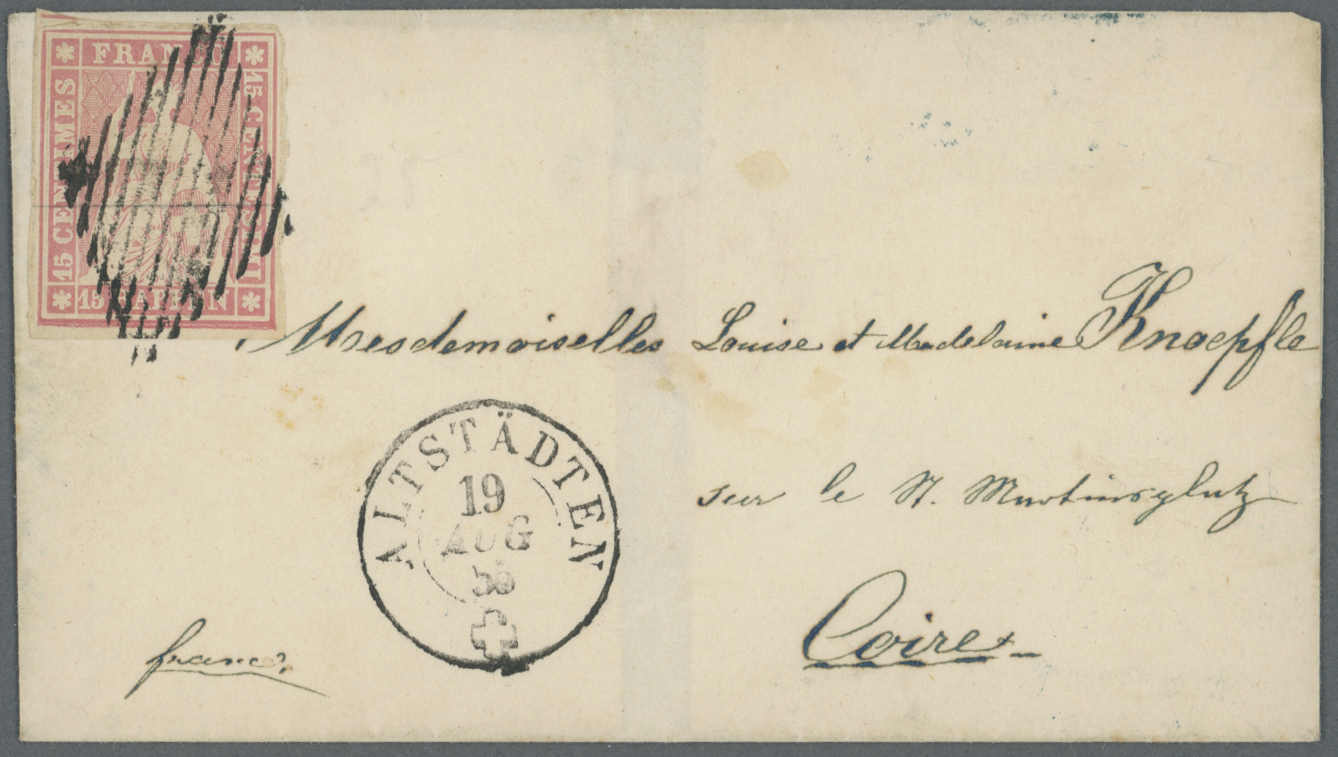 FRANCO
15 CENTIMES
15 CENTESIMI
15 RAPPEN
Mesdemoiselles Louise et Madelaine Knoepfle
ALTSTÄDTEN
19
AUG
sur le St. Martinsplatz
Coire
franco.